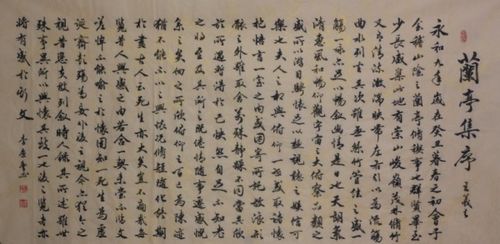 蘭亭集序 王羲之
永和九年歲在癸丑暮春之初會于
會稽山陰之蘭亭修禊事也群賢畢至
少長咸集此地有崇山峻嶺茂林脩竹
又有清流激湍映帶左右引以為流觴
曲水列坐其次雖無絲竹管弦之盛一
觴一詠亦足以暢敘幽情是日也天朗氣
清惠風和暢仰觀宇宙之大俯察品類之
盛所以遊目騁懷足以極視聽之娛信可
樂也夫人之相與俯仰一世或取諸懷
抱悟言一室之內或因寄所託放浪形
骸之外雖取舍萬殊靜躁不同當其欣
於所遇暫得於己快然自足不知老
之將至及其所之既倦情隨事遷感慨
係之矣向之所欣俯仰之間已為陳迹
猶不能不以之興懷況修短隨化終期
於盡古人云死生亦大矣豈不痛哉每
覽昔人興感之由若合一契未嘗不臨文
嗟悼不能喻之於懷固知一死生為虛
誕齊彭殤為妄作後之視今亦猶今之
視昔悲夫故列敘時人錄其所述雖世
殊事異所以興懷其致一也後之覽者亦
將有感於斯文